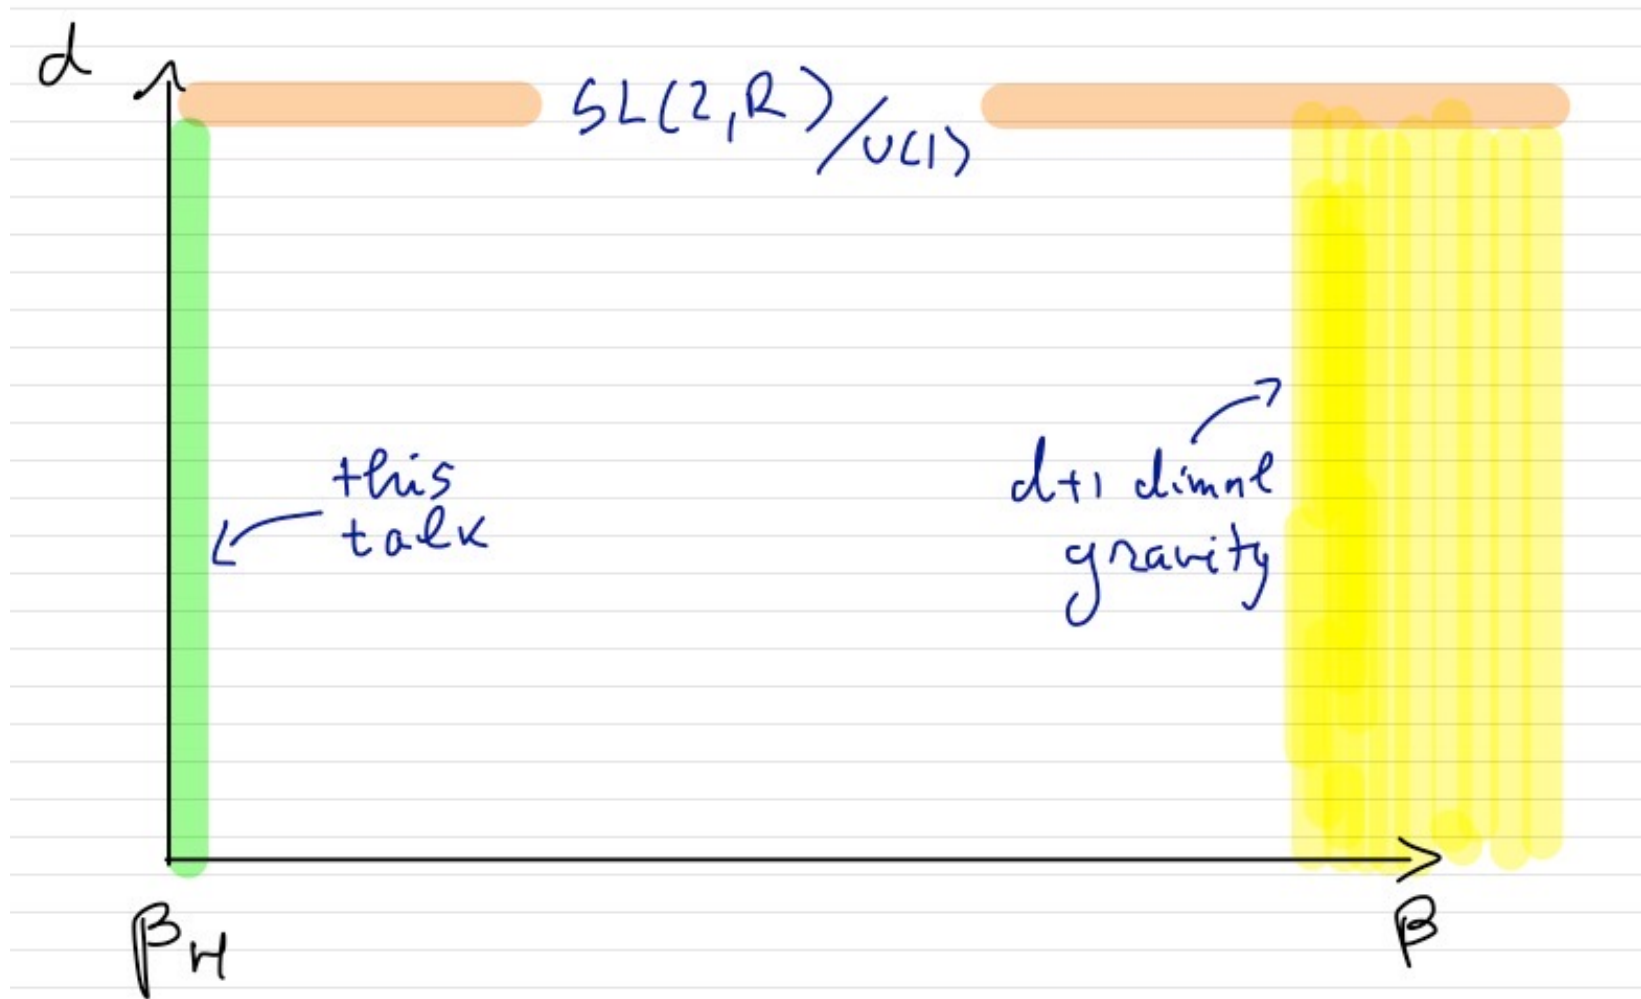 d
SL(2,R)/U(1)
this
talk
d+1 dimnl
gravity
βH
β